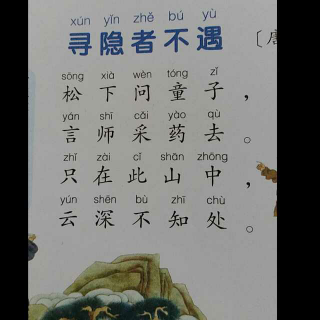 xún yǐn zhě bú yù
寻隐者不遇 〔唐
sōng xià wèn tóng zǐ
松下问童子，
yán shī cǎi yào qù
言师采药去。
zhǐ zài cǐ shān zhōng
只在此山中，
yún shēn bù zhī chù
云深不知处。